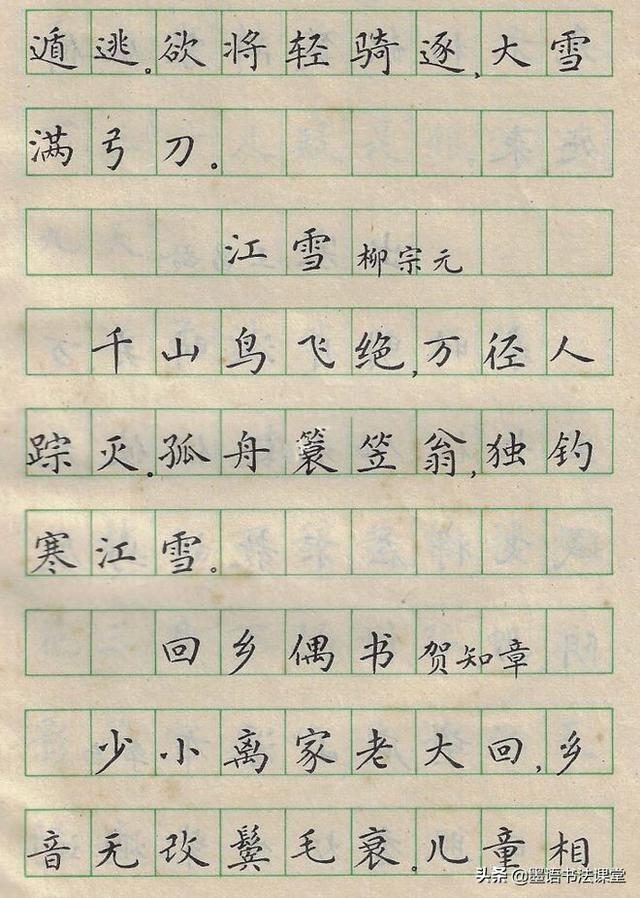 遁逃。欲将轻骑逐,大雪
满弓刀。
江雪 柳宗元
千山鸟飞绝,万径人
踪灭。孤舟蓑笠翁,独钓
寒江雪。
回乡偶书 贺知章
少小离家老大回,乡
音无改鬓毛衰。儿童相
头条 @墨语书法课堂